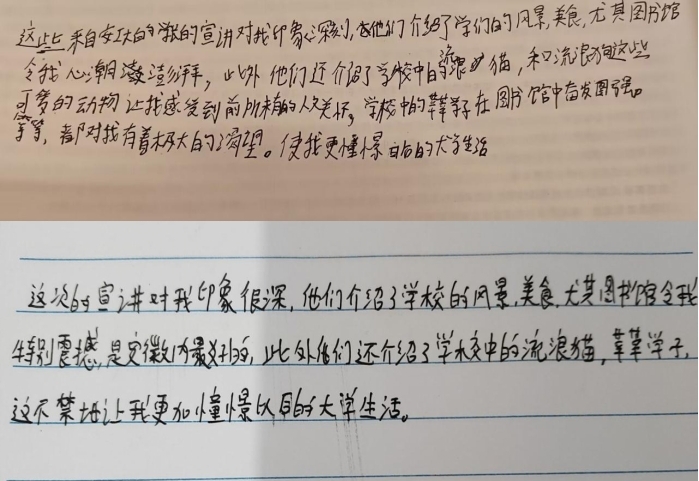 这些来自安工大的学长的宣讲对我印象深刻,他们介绍了学们的风景,美食,尤其图书馆
令我心潮澎湃,此外他们还介绍了学校中的流浪猫,和流浪狗这些
可爱的动物让我感受到前所未有的人文关怀,学校中的莘莘学子在图书馆中奋发图强。
等等,都对我有着极大的渴望。使我更憧憬日后的大学生活
这次的宣讲对我印象很深,他们介绍了学校的风景,美食,尤其图书馆令我
特别震撼,是安徽内最好的,此外他们还介绍了学校中的流浪猫,莘莘学子,
这不禁让我更加憧憬以后的大学生活。